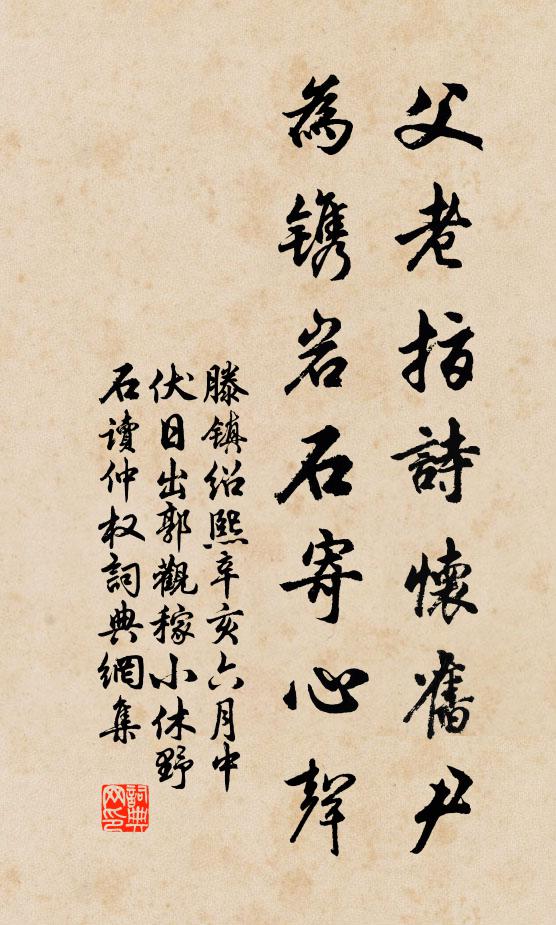 父老指詩懷舊尹
為鐫岩石寄心聲
滕鎮紹熙辛亥六月中
伏日出郭觀稼小休野
石讀仲权詞典網集
詞典网印